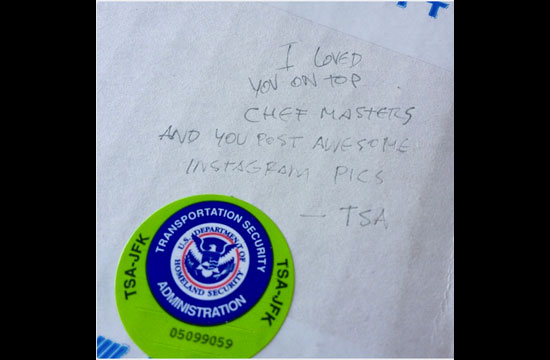 I LOVED
YOU ON TOP
CHEF MASTERS
AND YOU POST AWESOME
INSTAGRAM PICS
— TSA
TRANSPORTATION SECURITY
ADMINISTRATION
U.S. DEPARTMENT OF
HOMELAND SECURITY
TSA-JFK
TSA-JFK
05099059